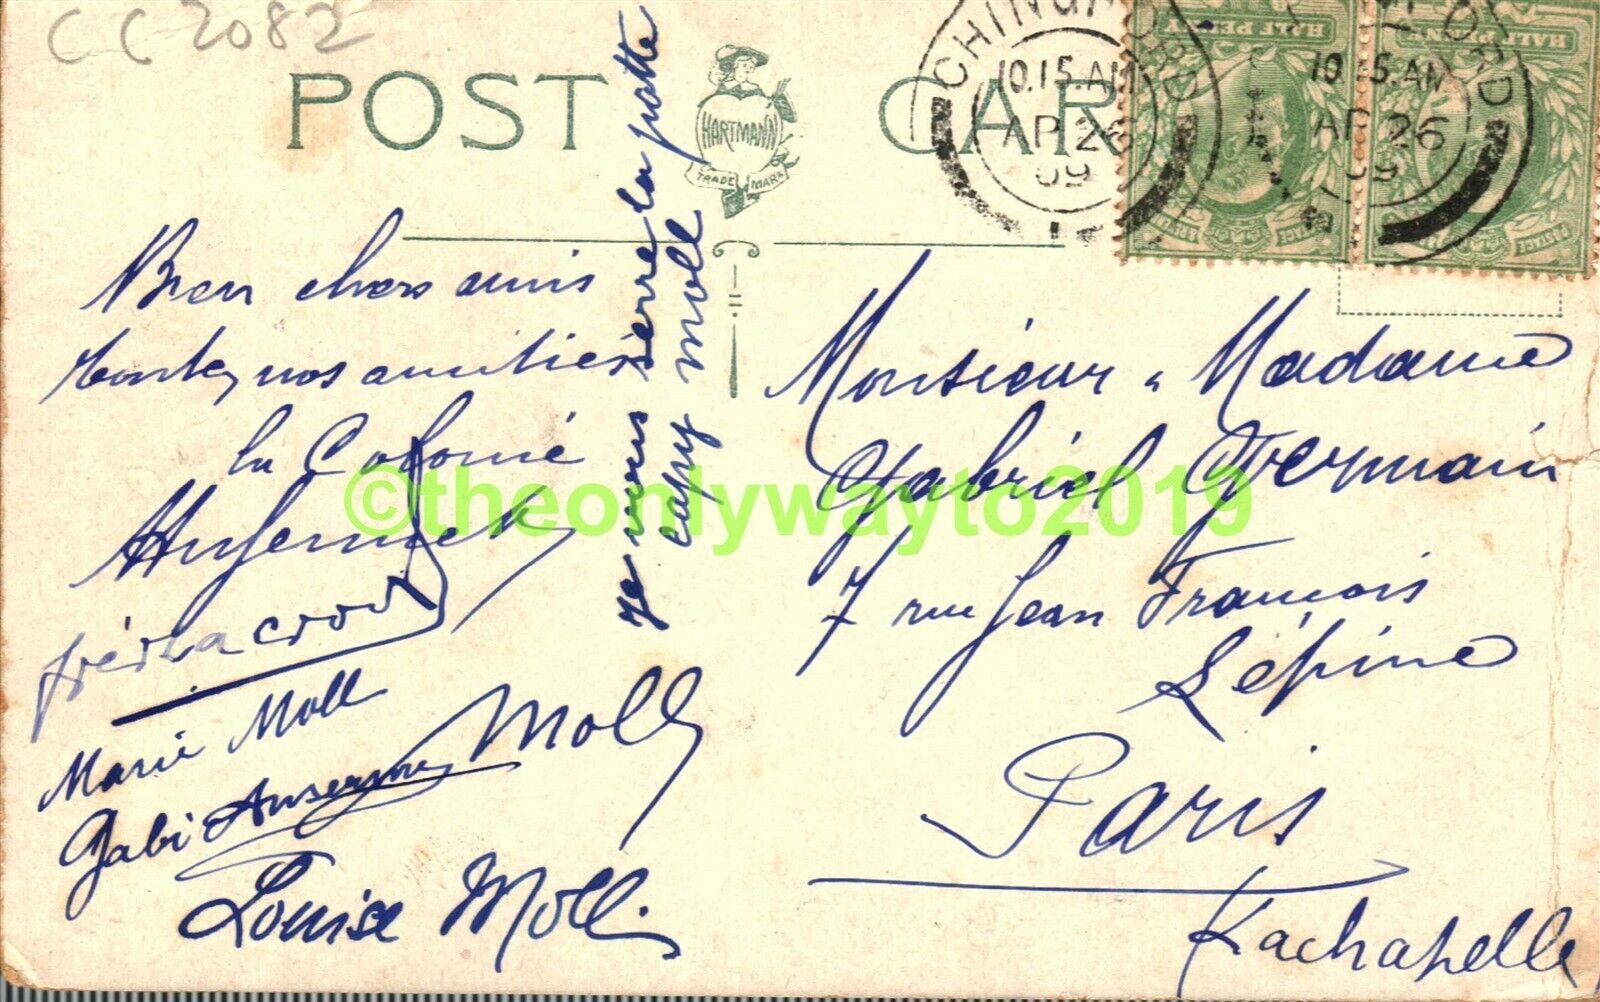 CC 2082
POST CARD
HARTMANN
TRADE MARK
CHINGFORD
10.15.AM
AP 26
09
HALF PENNY
HALF PENNY
10.15.AM
AP 26
09
POSTAGE
Bien chers amis
toutes nos amitiés
la Colonie
Ansermet
Marie Moll
Moll
Gabi Ansermet
Louise Moll.
Je vous serre la patte
capy moll
Monsieur & Madame
Gabriel Germain
7 rue Jean François
Lépine
Paris
Lachapelle
©theonlywayto2019